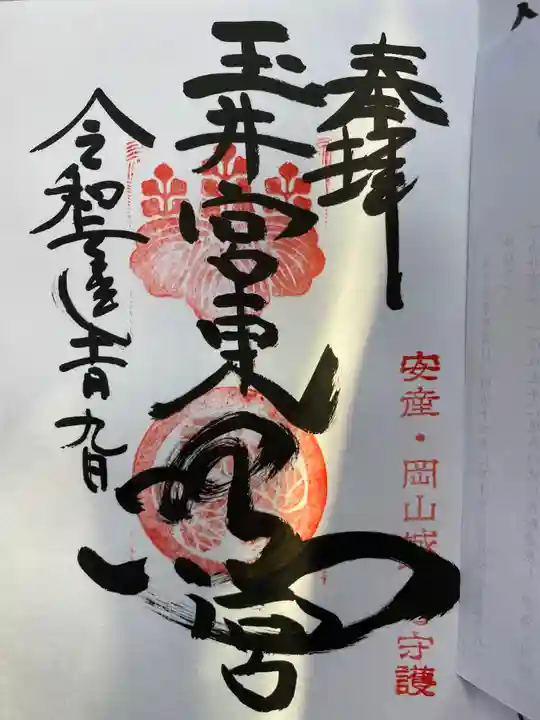 奉拝
安産・岡山城 守護
玉井宮東照宮
令和 年 月九日